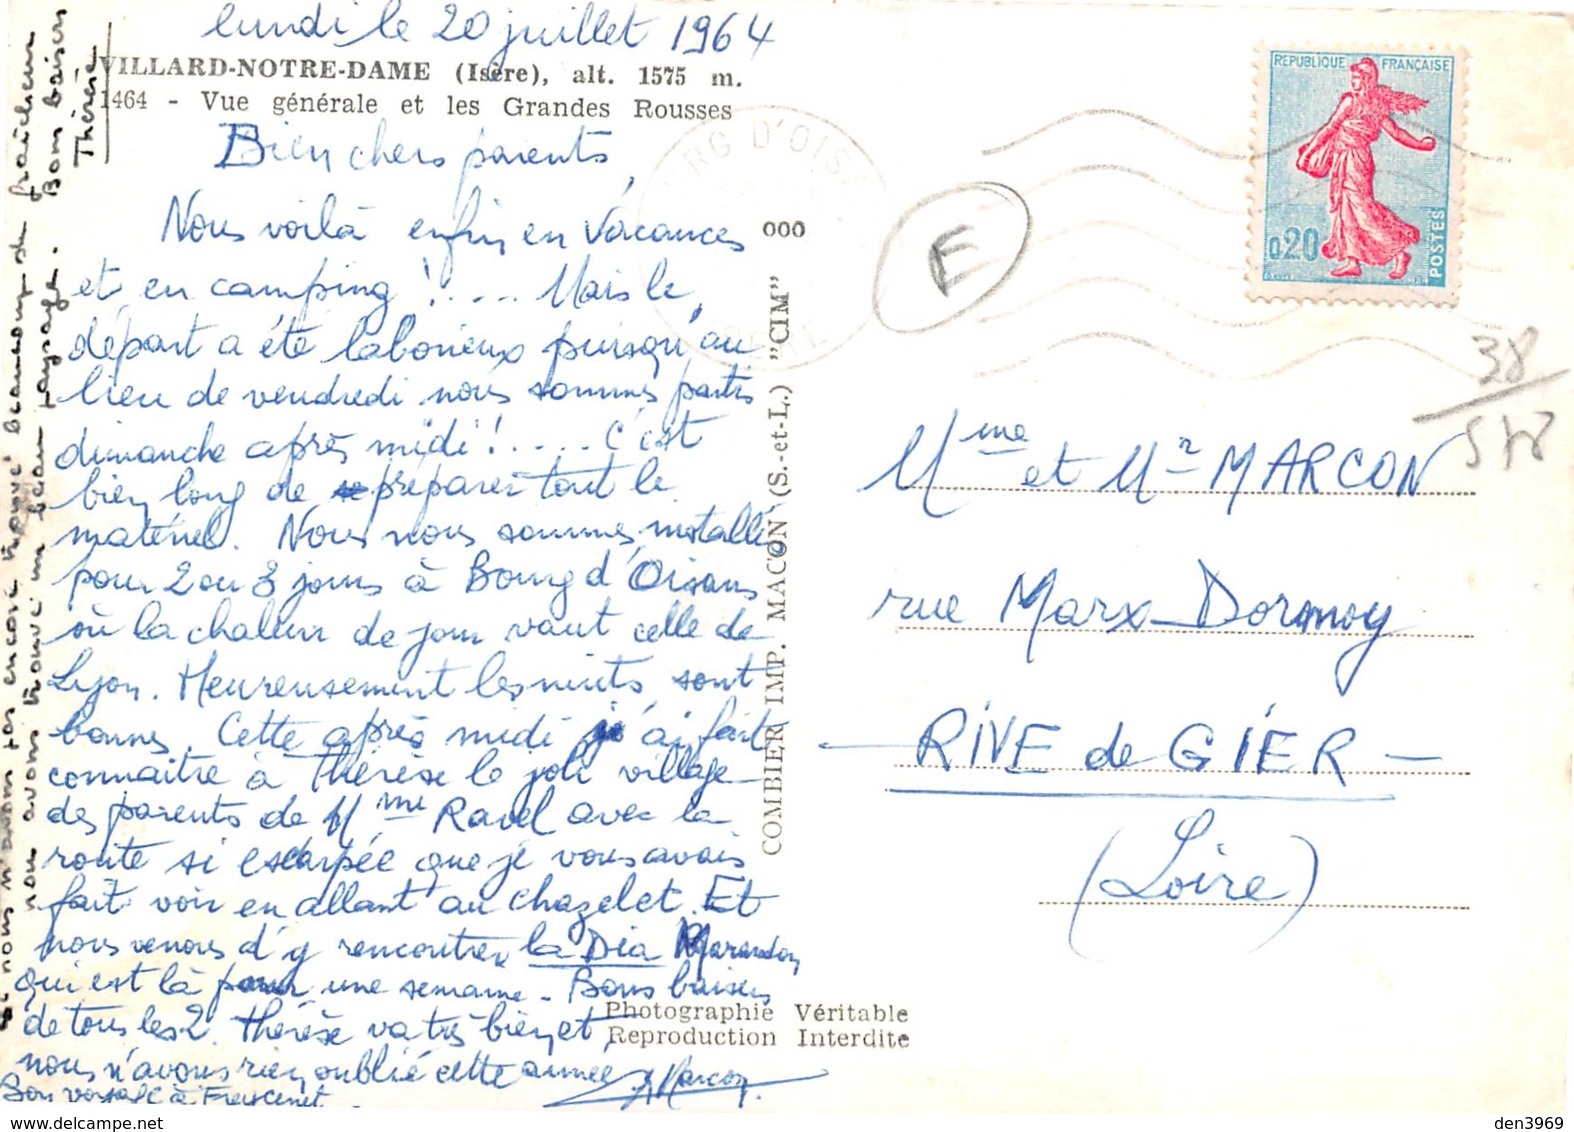 lundi le 20 juillet 1964
VILLARD-NOTRE-DAME (Isère), alt. 1575 m.
1464 - Vue générale et les Grandes Rousses
Bien chers parents,
Nous voilà enfin en vacances
et en camping !.... Mais le
départ a été laborieux puisqu'au
lieu de vendredi nous sommes partis
dimanche après midi !.... C'est
bien long de préparer tout le
matériel. Nous nous sommes installés
pour 2 ou 3 jours à Bourg d'Oisans
où la chaleur de jour vaut celle de
Lyon. Heureusement les nuits sont
bonnes. Cette après midi j'ai fait
connaitre à Thérèse le joli village
des parents de Mme Ravel avec la
route si escarpée que je vous avais
fait voir en allant au chazelet. Et
nous venons d'y rencontrer la Dia Marandon
qui est là pour une semaine - Bons baisers
de tous les 2. Thérèse va très bien et
nous n'avons rien oublié cette année
Bon voyage à Freycenet. Marcon
nous n'avons pas encore trouvé beaucoup de fraîcheur
nous avons trouvé un beau paysage. Bons baisers
Thérèse
000
COMBIER IMP. MACON (S.-et-L.) "CIM"
Photographie Véritable
Reproduction Interdite
E
REPUBLIQUE FRANÇAISE
0,20
POSTES
38/548
Mme et Mr MARCON
rue Marx-Dormoy
RIVE de GIER
(Loire)
den3969